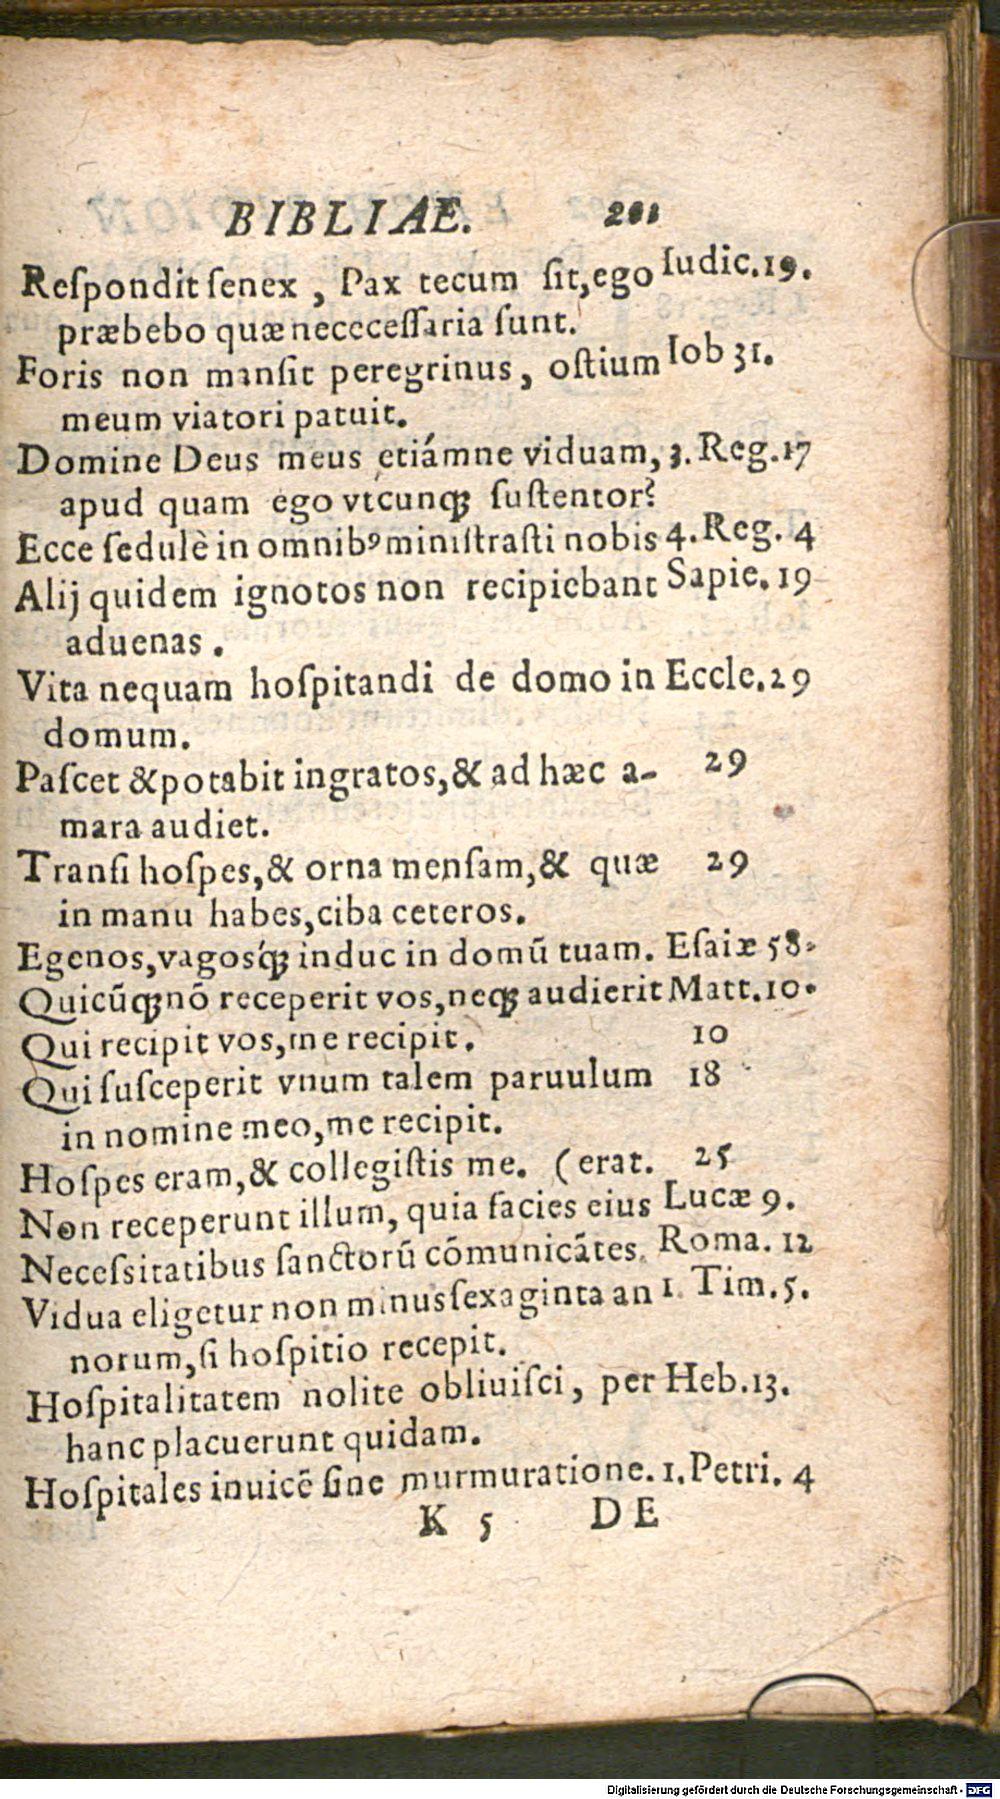 BIBLIAE. 201
Reſpondit ſenex , Pax tecum ſit,ego Iudic.19.
præbebo quæ nececeſſaria ſunt.
Foris non manſit peregrinus, oſtium Iob 31.
meum viatori patuit.
Domine Deus meus etiámne viduam, 3. Reg.17
apud quam ego vtcunqꝫ ſuſtentor?
Ecce ſedulè in omnibꝰ miniſtraſti nobis 4. Reg. 4
Alij quidem ignotos non recipiebant Sapie. 19
aduenas .
Vita nequam hoſpitandi de domo in Eccle.29
domum.
Paſcet & potabit ingratos,& ad hæc a- 29
mara audiet.
Tranſi hoſpes,& orna menſam,& quæ 29
in manu habes,ciba ceteros.
Egenos,vagosq́ꝫ induc in domū tuam. Eſaiæ 58.
Quicūqꝫ nō receperit vos,neqꝫ audierit Matt.10.
Qui recipit vos,me recipit. 10
Qui ſuſceperit vnum talem paruulum 18
in nomine meo,me recipit.
Hoſpes eram,& collegiſtis me. (erat. 25
Non receperunt illum, quia facies eius Lucæ 9.
Neceſsitatibus ſanctorū cōmunicātes. Roma. 12
Vidua eligetur non minus ſexaginta an 1. Tim.5.
norum,ſi hoſpitio recepit.
Hoſpitalitatem nolite obliuiſci, per Heb.13.
hanc placuerunt quidam.
Hoſpitales inuicē ſine murmuratione. 1. Petri. 4
K 5 DE
Digitalisierung gefördert durch die Deutsche Forschungsgemeinschaft - DFG